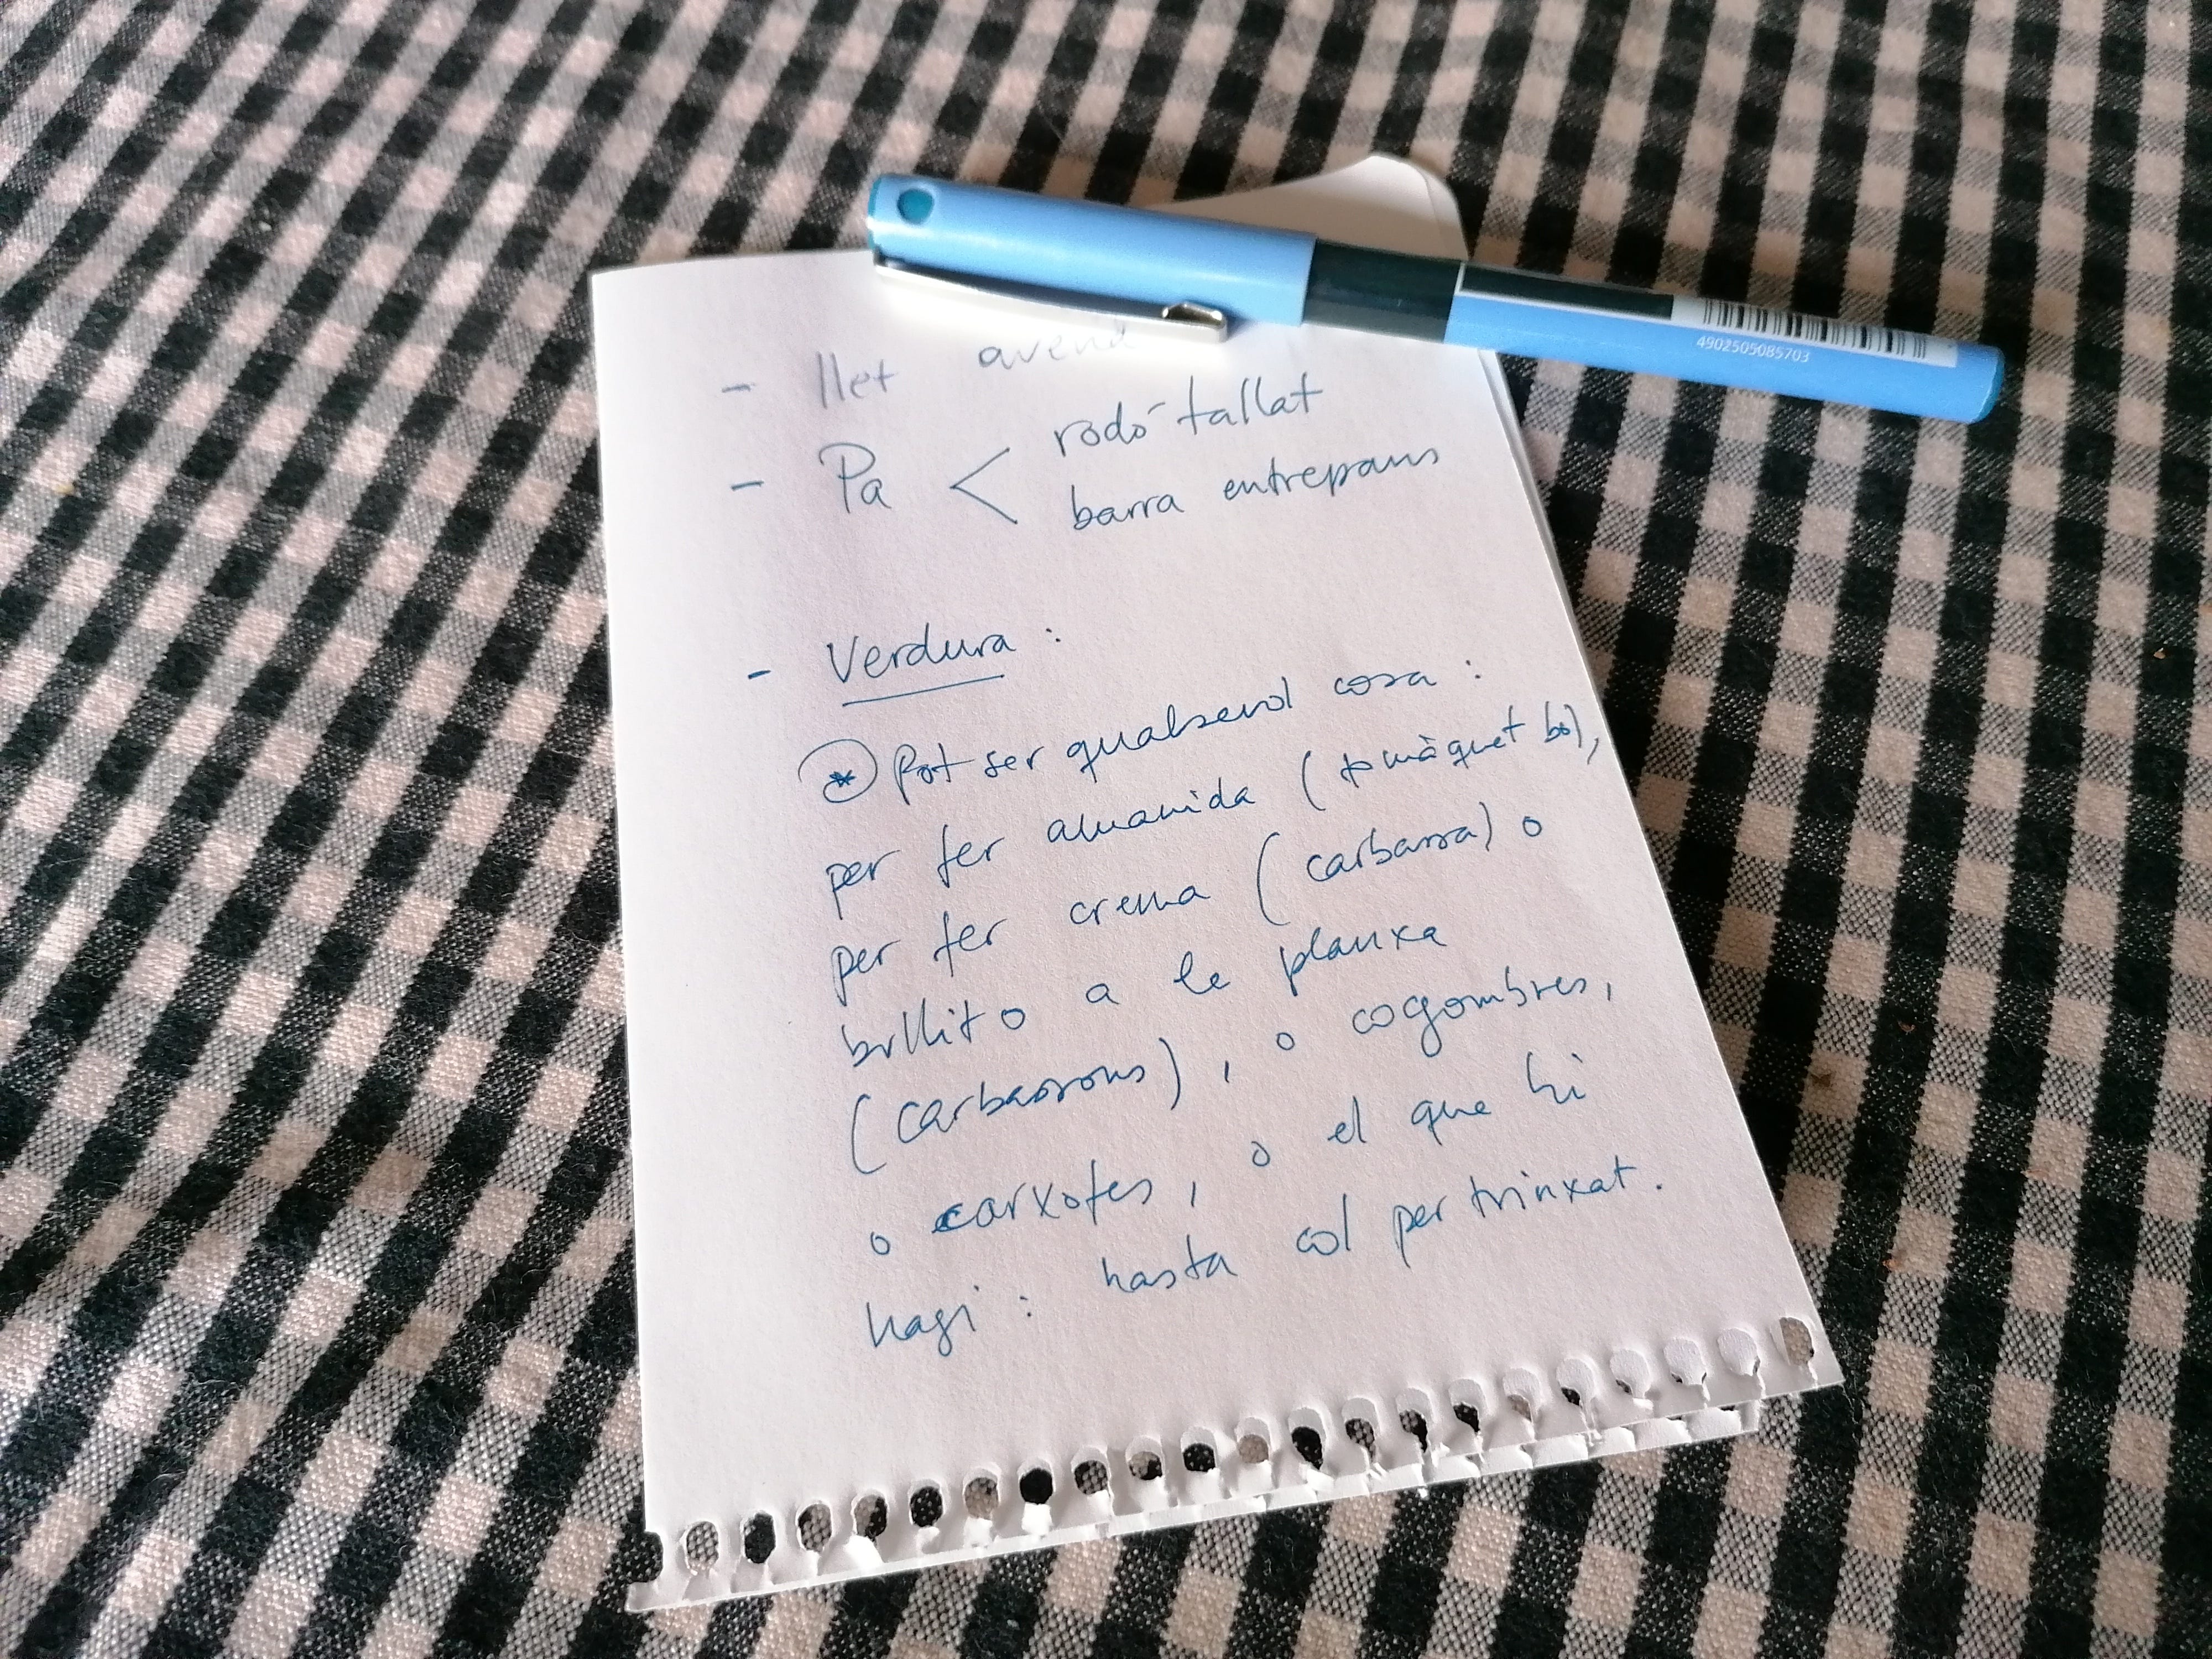 4902505085703
- llet avend
- Pa < rodó tallat
barra entrepans
- Verdura :
* Pot ser qualsevol cosa :
per fer amanida (tomàquet bo),
per fer crema (carbassa) o
bullit o a la planxa
(carbassons), o cogombres,
o carxofes, o el que hi
hagi : hasta col per trinxat.